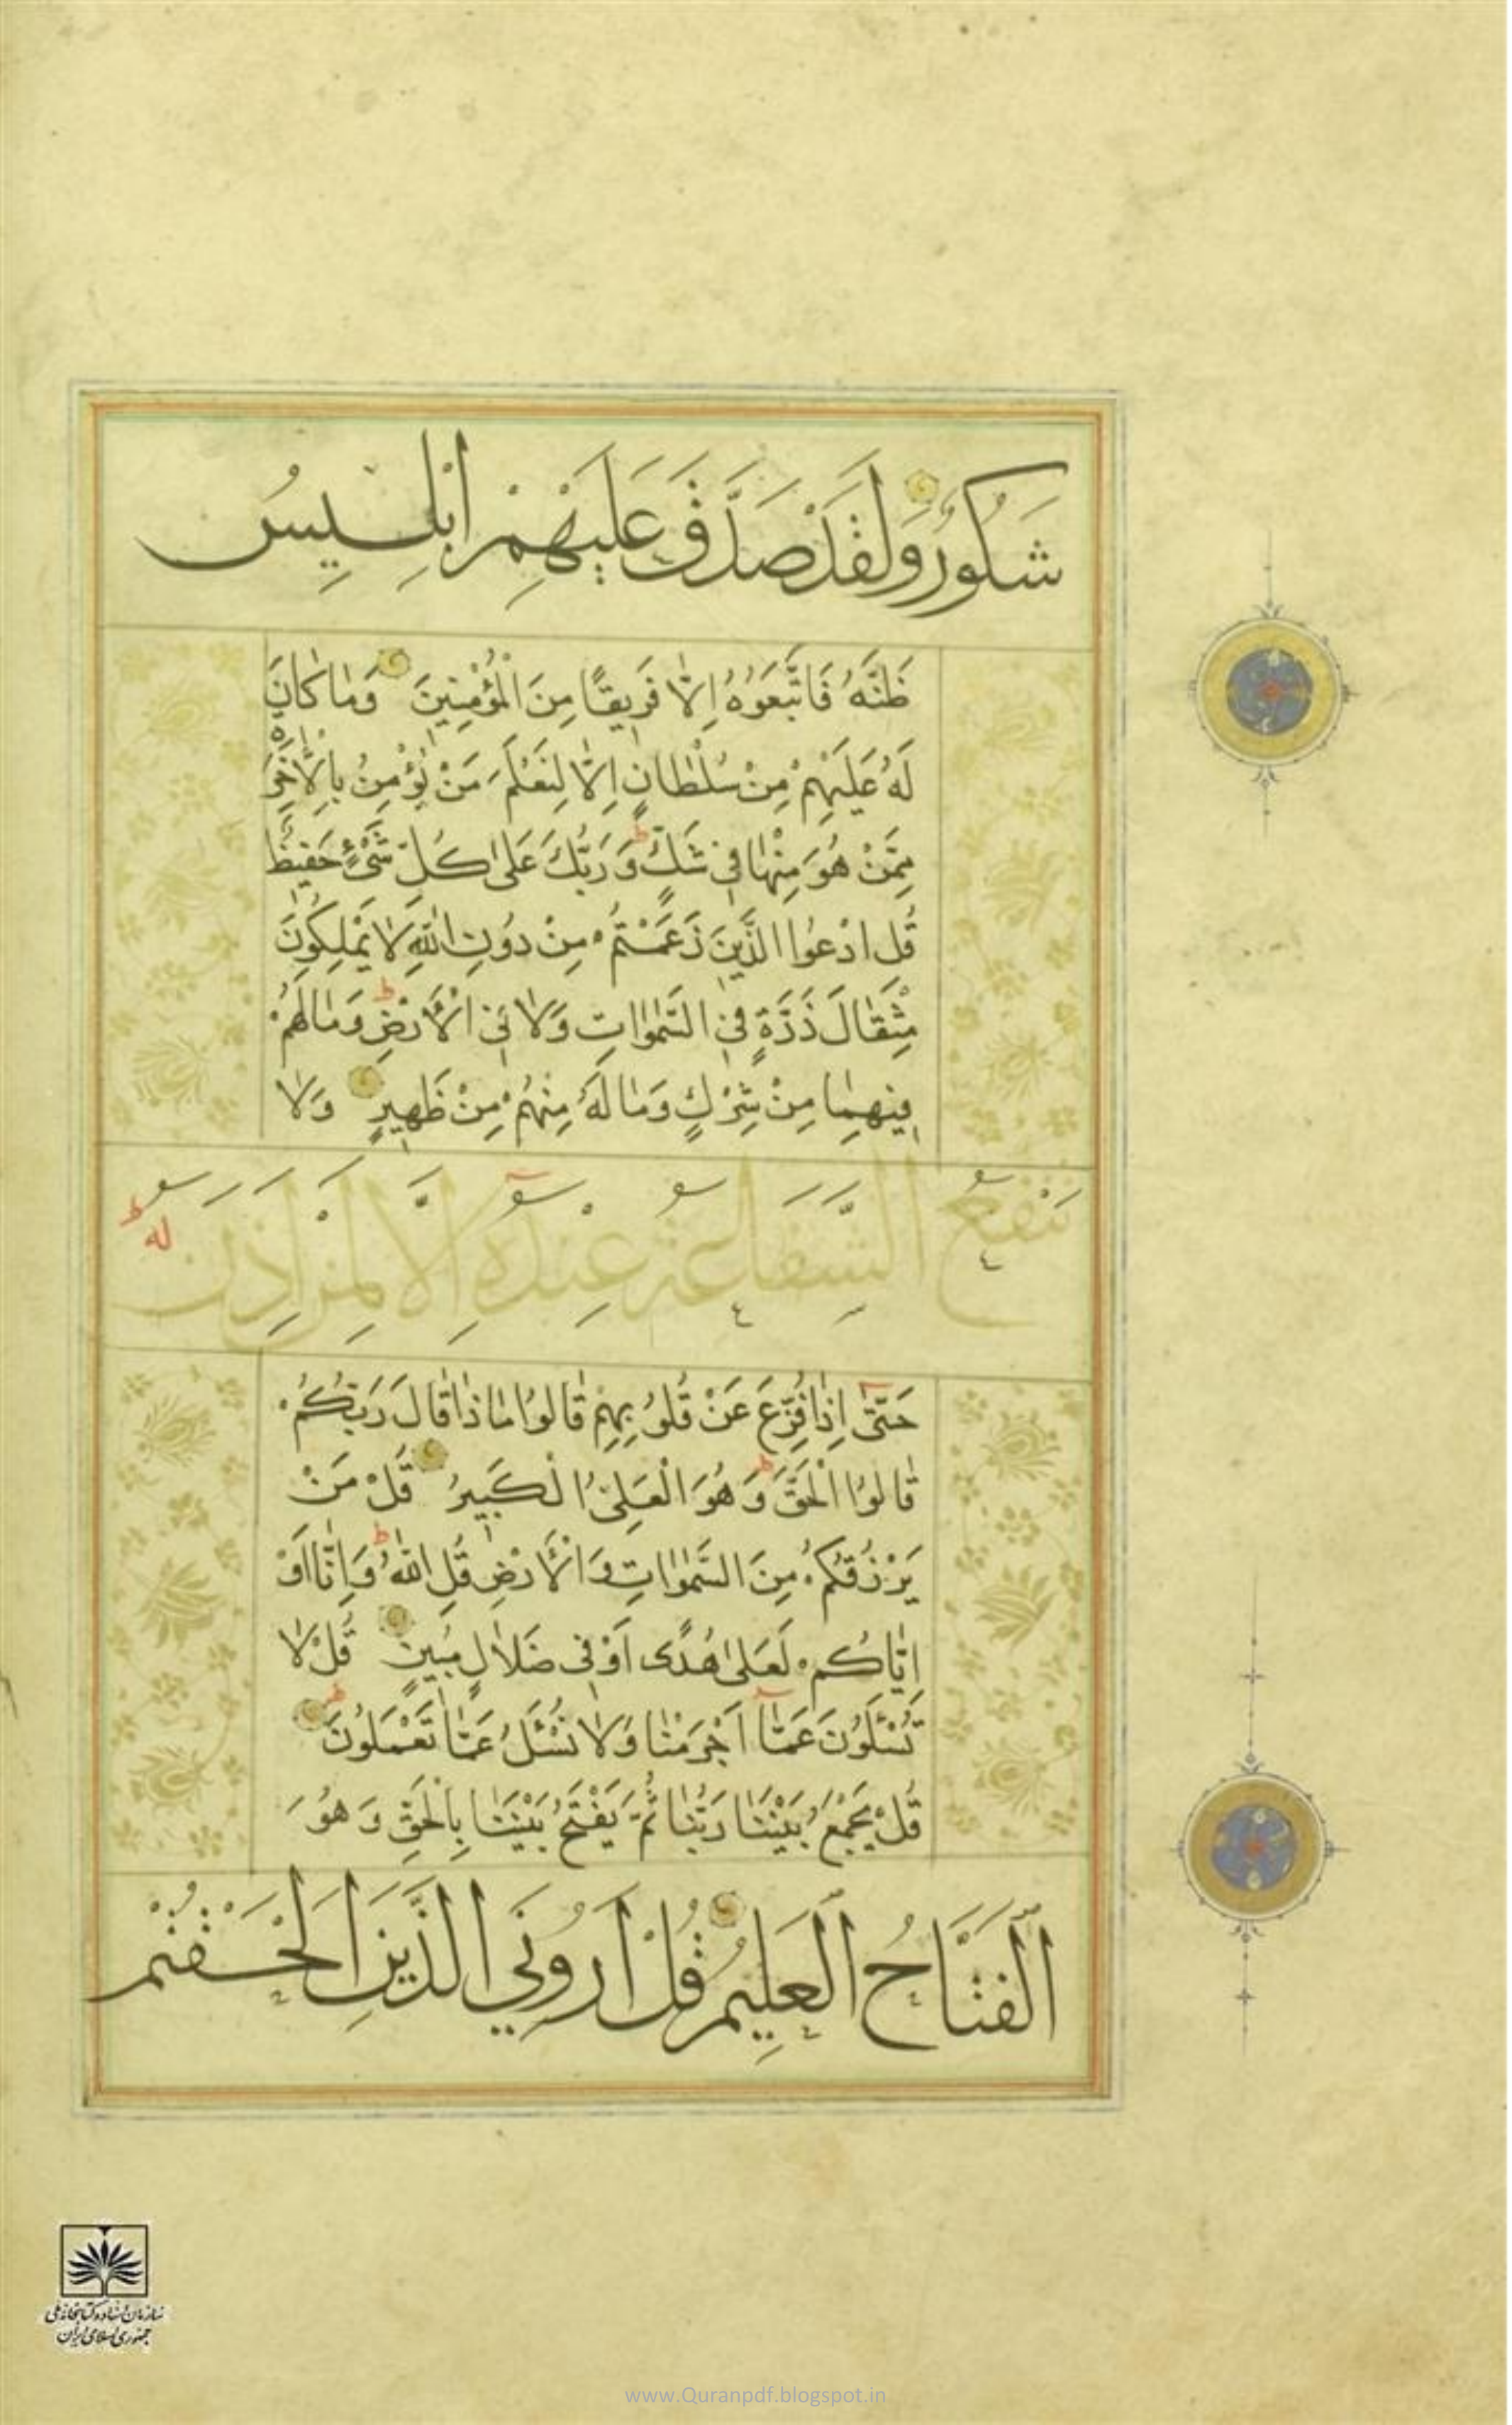 شَكُورٍ وَلَقَدْ صَدَّقَ عَلَيْهِمْ اِبْلِيسُ
ظَنَّهُ فَاتَّبَعُوهُ اِلَّا فَرِيقًا مِنَ الْمُؤْمِنِينَ وَمَا كَانَ
لَهُ عَلَيْهِمْ مِنْ سُلْطَانٍ اِلَّا لِنَعْلَمَ مَنْ يُؤْمِنُ بِالْاٰخِرَةِ
مِمَّنْ هُوَ مِنْهَا فِى شَكٍّ ط وَ رَبُّكَ عَلٰى كُلِّ شَىْءٍ حَفِيظٌ
قُلِ ادْعُوا الَّذِينَ زَعَمْتُمْ مِنْ دُونِ اللّٰهِ لَا يَمْلِكُونَ
مِثْقَالَ ذَرَّةٍ فِى السَّمٰوَاتِ وَلَا فِى الْاَرْضِ ط وَمَا لَهُمْ
فِيهِمَا مِنْ شِرْكٍ وَمَا لَهُ مِنْهُمْ مِنْ ظَهِيرٍ وَلَا
تَنْفَعُ الشَّفَاعَةُ عِنْدَهُ اِلَّا لِمَنْ اَذِنَ لَهُ ط
حَتّٰى اِذَا فُزِّعَ عَنْ قُلُوبِهِمْ قَالُوا مَاذَا قَالَ رَبُّكُمْ
قَالُوا الْحَقَّ ط وَ هُوَ الْعَلِىُّ الْكَبِيرُ قُلْ مَنْ
يَرْزُقُكُمْ مِنَ السَّمٰوَاتِ وَ الْاَرْضِ قُلِ اللّٰهُ ط وَاِنَّا اَوْ
اِيَّاكُمْ لَعَلٰى هُدًى اَوْ فِى ضَلَالٍ مُبِينٍ قُلْ لَا
تُسْئَلُونَ عَمَّا اَجْرَمْنَا وَلَا نُسْئَلُ عَمَّا تَعْمَلُونَ ط
قُلْ يَجْمَعُ بَيْنَنَا رَبُّنَا ثُمَّ يَفْتَحُ بَيْنَنَا بِالْحَقِّ وَ هُوَ
الْفَتَّاحُ الْعَلِيمُ قُلْ اَرُونِيَ الَّذِينَ اَلْحَقْتُمْ
سازمان اسناد و کتابخانه ملی
جمهوری اسلامی ایران
www.Quranpdf.blogspot.in